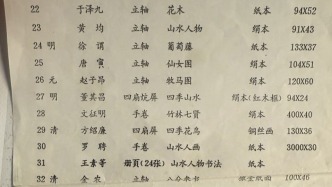 22 于泽九 立轴 花木 纸本 94X52
23 黄均 立轴 山水人物 绢本 91X43
24 明 徐谓 立轴 葡萄藤 纸本 133X37
25 唐寅 立轴 仙女图 绢本 104X51
26 元 赵子昂 立轴 牧马图 绢本 120X60
27 明 董其昌 四扇炕屏 四季山水 绢本(红木框) 94X24
28 文征明 手卷 竹林七贤 纸本 400X40
29 清 方绍廉 四扇屏 四季花鸟 铜丝画 130X36
30 罗聘 手卷 山水人画 纸本 3000X30
31 王素等 册頁(24张) 山水人物书法 纸本
32 清 金农 立轴 八分隶书 100X46